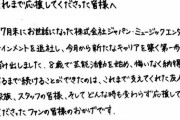 これまで応援してくださった皆様へ
7月末にお世話になった株式会社ジャパン・ミュージックエンタ
ーテインメントを退社し、今月から新たなキャリアを築く第一歩
を踏み出しました。8歳で芸能活動を始め、悔いなく納得
るまで続けることができたのは、これまで支えてくれた友人
家族、スタッフの皆さん、そしてどんな時も変わらず応援して
くださったファンの皆様のおかげです。